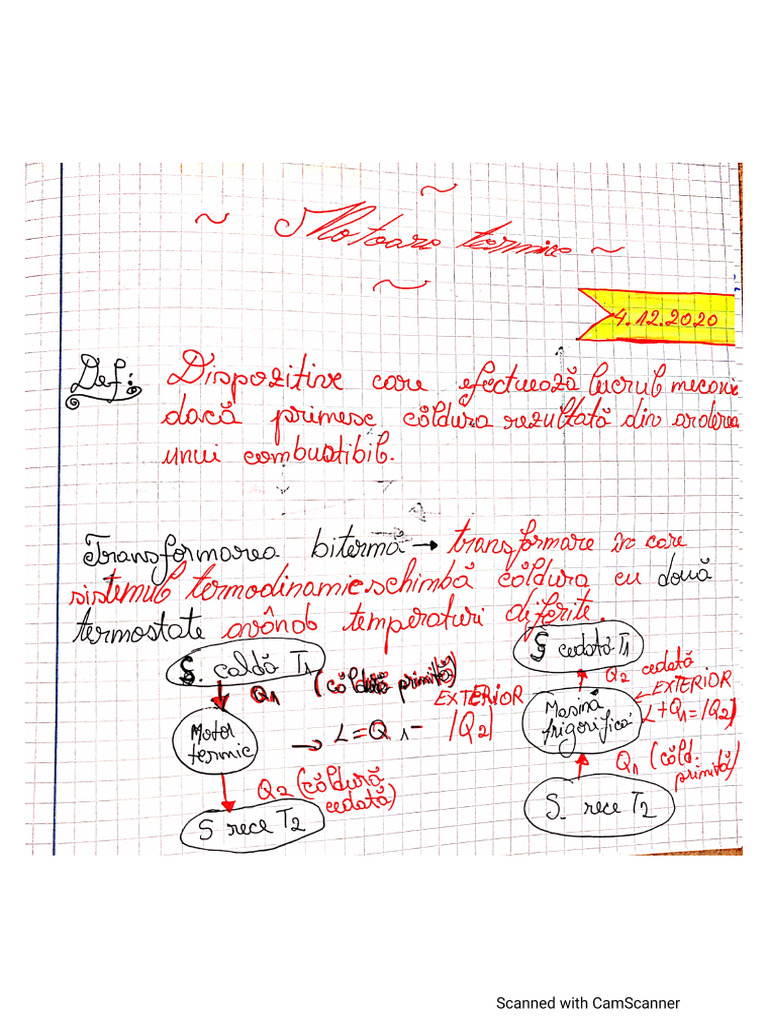 ~ Motoare termice ~
4.12.2020
Def: Dispozitive care efectuează lucrul mecanic
dacă primesc căldura rezultată din arderea
unui combustibil.
Transformarea bitermă → transformare în care
sistemul termodinamic schimbă căldura cu două
termostate având temperaturi diferite.
S. caldă T1
Q1 (căldură primită)
Motor
termic
→ L = Q1 - |Q2|
EXTERIOR
Q2 (căldură
cedată)
S rece T2
S cedată T1
Q2 cedată
EXTERIOR
Masină
frigorifică
L + Q1 = |Q2|
Q1 (căld.
primită)
S. rece T2
Scanned with CamScanner